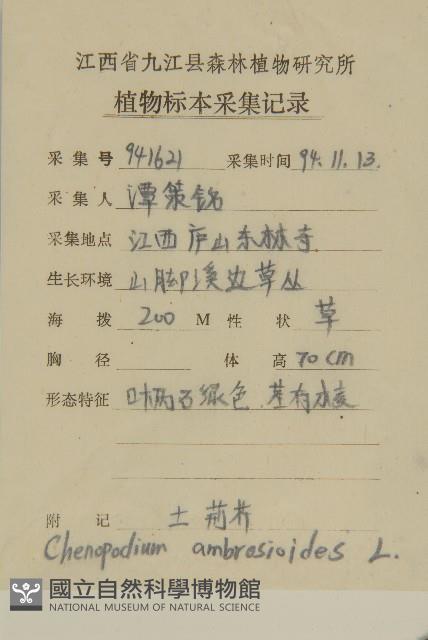 江西省九江县森林植物研究所
植物标本采集记录
采集号 941621 采集时间 94.11.13.
采集人 谭策铭
采集地点 江西庐山东林寺
生长环境 山脚溪边草丛
海拨 200 M 性状 草
胸径 体高 70cm
形态特征 叶两面绿色 茎有水棱
附记 土荊芥
Chenopodium ambrosioides L.
國立自然科學博物館
NATIONAL MUSEUM OF NATURAL SCIENCE